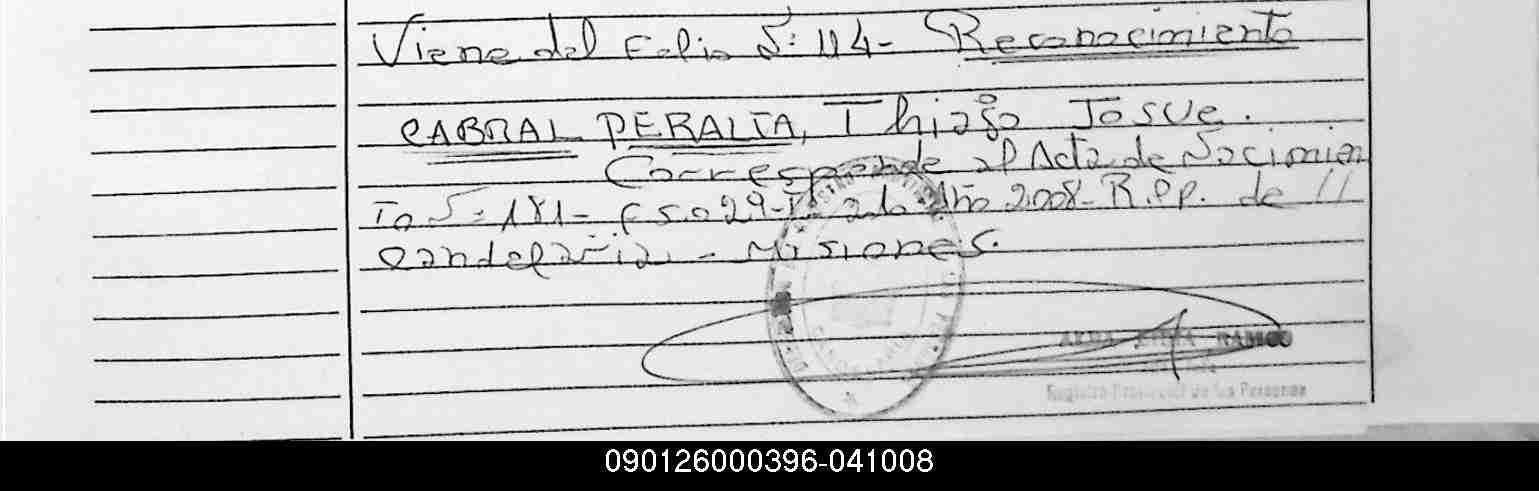 Viene del Folio N: 114- Reconocimiento
CABRAL PERALTA, Thiago Josue.
Corresponde al Acta de Nacimien
to N: 181- Fs. 029- Tº 2 do Año 2.008- R.P.P. de //
Candelaria. - Misiones.
RAMOS
Registro Provincial de las Personas
090126000396-041008